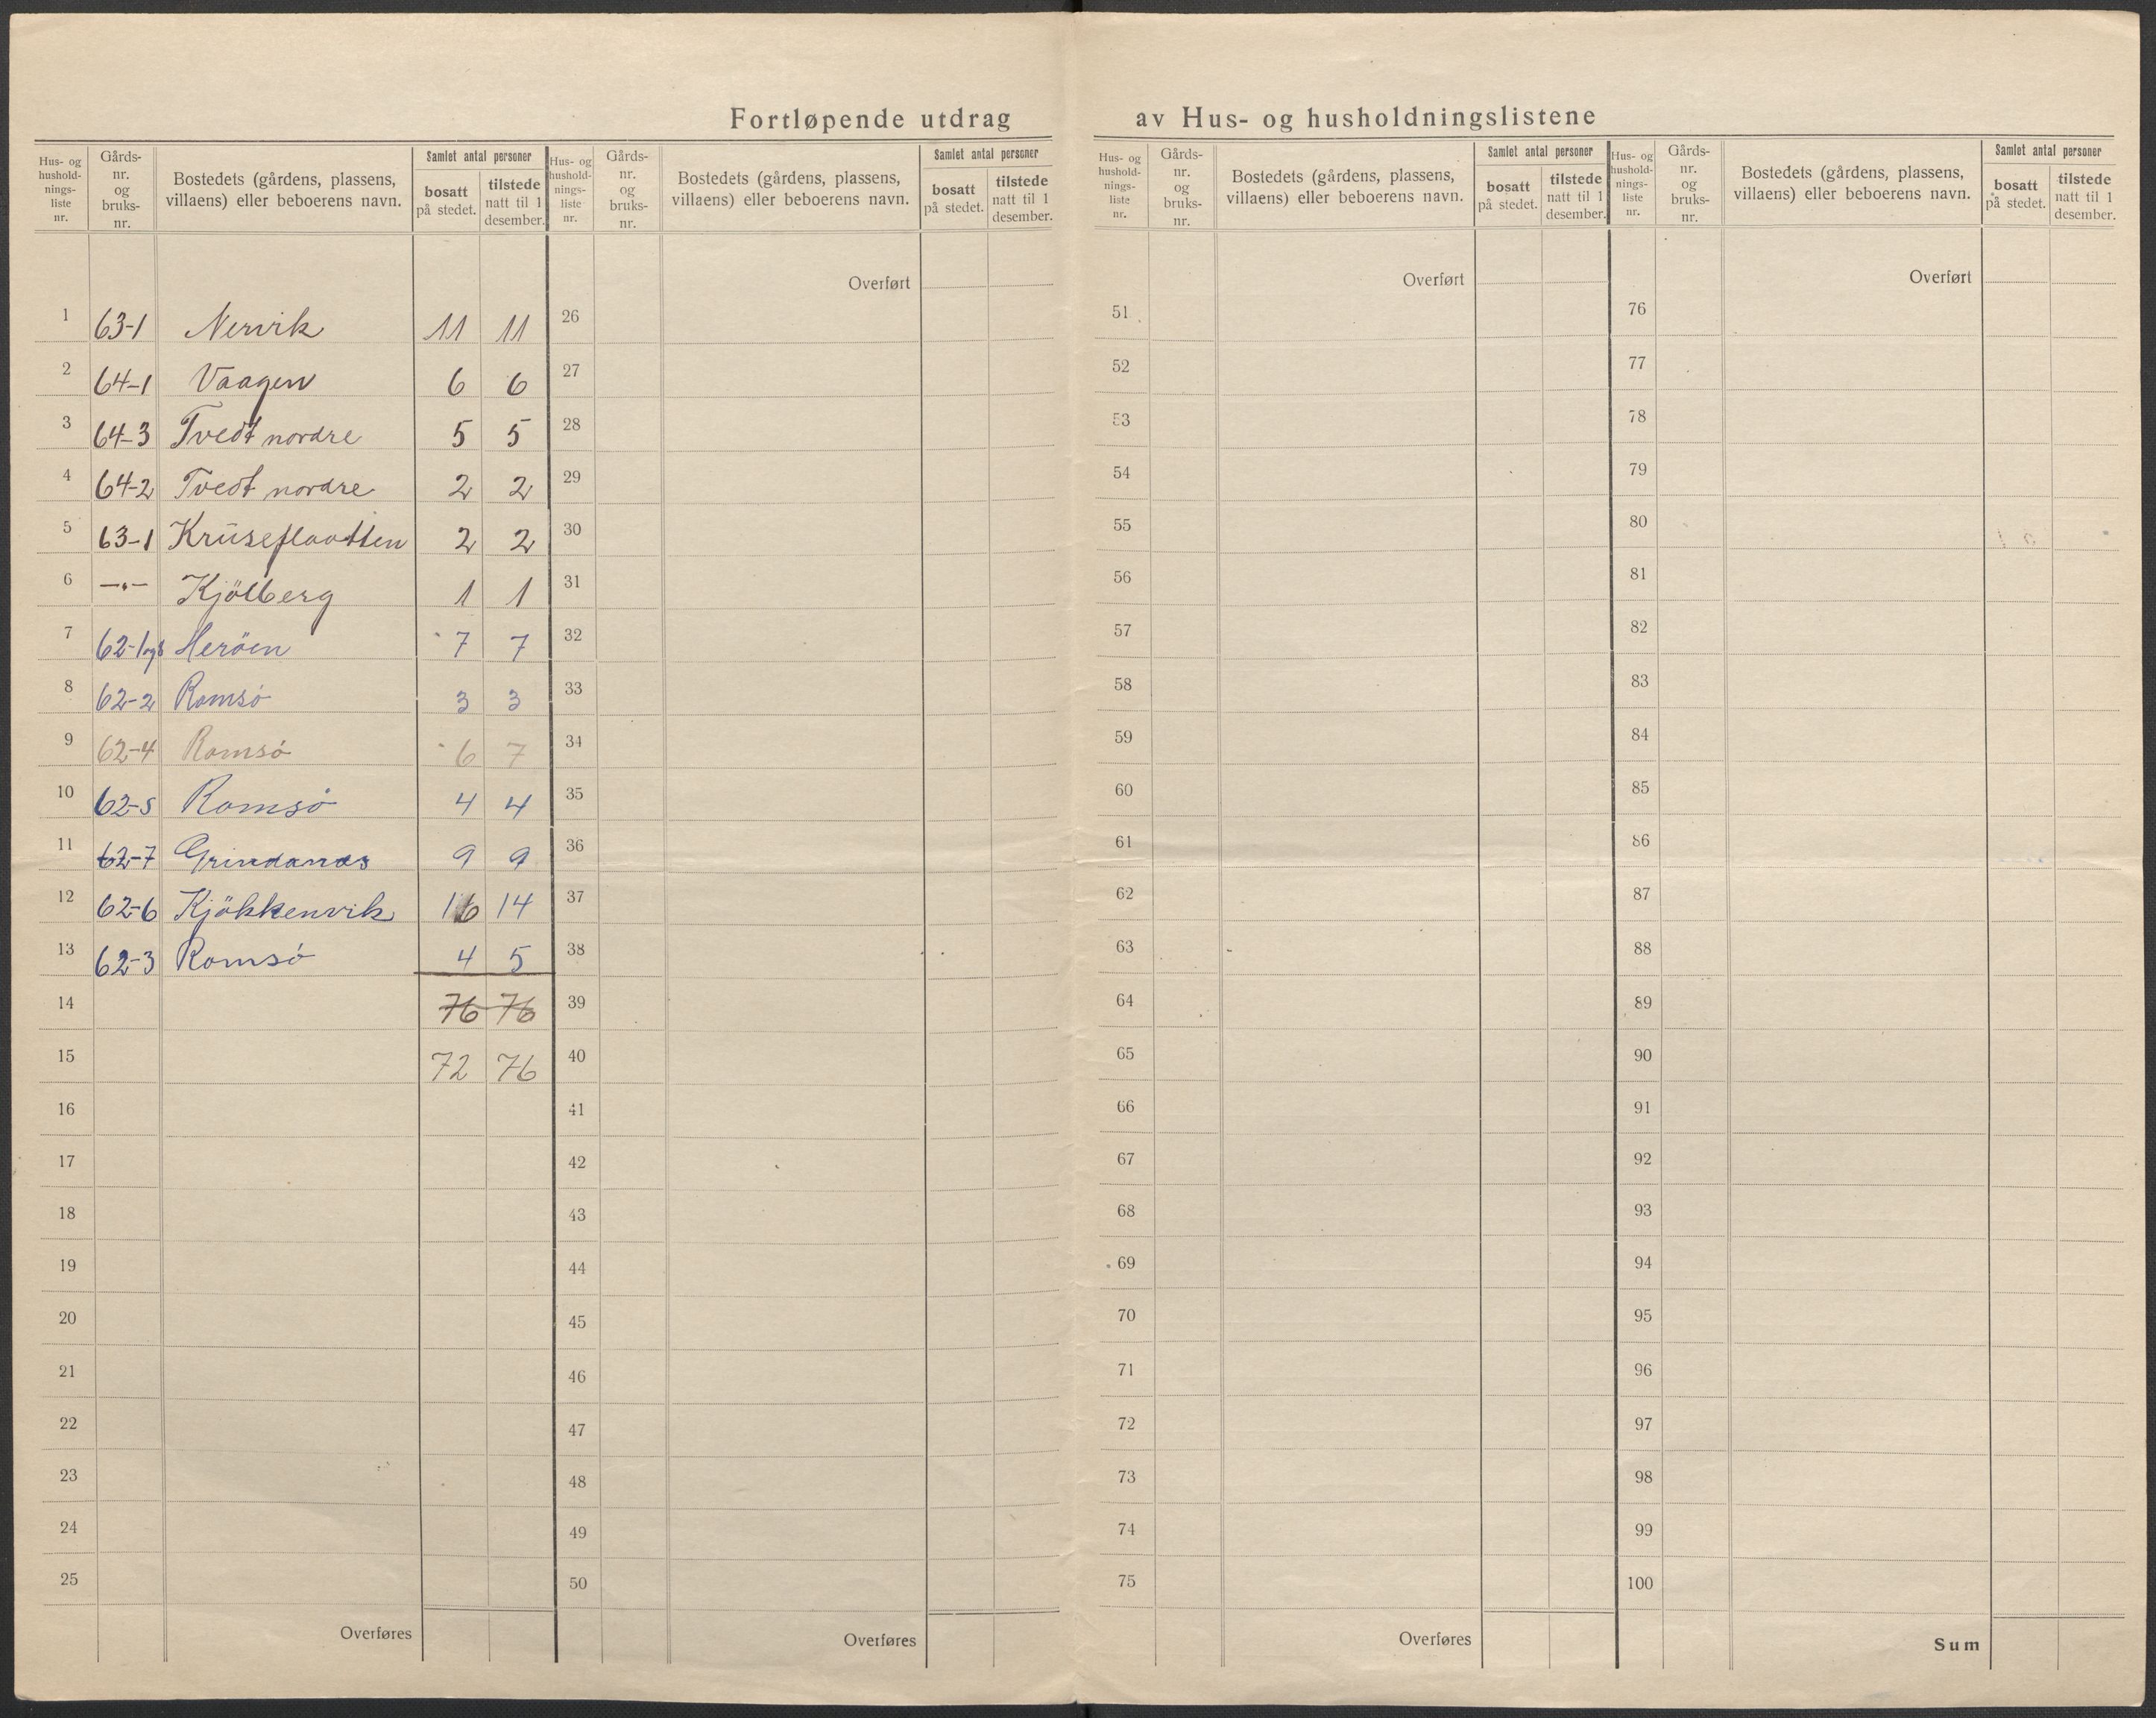 Fortløpende utdrag av Hus- og husholdningslistene
Hus- og hushold-nings-liste nr. Gårds-nr. og bruks-nr. Bostedets (gårdens, plassens, villaens) eller beboerens navn. Samlet antal personer bosatt på stedet. tilstede natt til 1 desember.
1 63-1 Nervik 11 11
2 64-1 Vaagen 6 6
3 64-3 Tvedt nordre 5 5
4 64-2 Tvedt nordre 2 2
5 63-1 Kruseflaatten 2 2
6 —„— Kjölberg 1 1
7 62-1 og 8 Heröen 7 7
8 62-2 Romsö 3 3
9 62-4 Romsö 6 7
10 62-5 Romsö 4 4
11 62-7 Grindanes 9 9
12 62-6 Kjökkenvik 14
13 62-3 Romsö 4 5
14 76 76
15 72 76
16
17
18
19
20
21
22
23
24
25
Overføres
Hus- og hushold-nings-liste nr. Gårds-nr. og bruks-nr. Bostedets (gårdens, plassens, villaens) eller beboerens navn. Samlet antal personer bosatt på stedet. tilstede natt til 1 desember.
Overført
26
27
28
29
30
31
32
33
34
35
36
37
38
39
40
41
42
43
44
45
46
47
48
49
50
Overføres
Hus- og hushold-nings-liste nr. Gårds-nr. og bruks-nr. Bostedets (gårdens, plassens, villaens) eller beboerens navn. Samlet antal personer bosatt på stedet. tilstede natt til 1 desember.
Overført
51
52
53
54
55
56
57
58
59
60
61
62
63
64
65
66
67
68
69
70
71
72
73
74
75
Overføres
Hus- og hushold-nings-liste nr. Gårds-nr. og bruks-nr. Bostedets (gårdens, plassens, villaens) eller beboerens navn. Samlet antal personer bosatt på stedet. tilstede natt til 1 desember.
Overført
76
77
78
79
80
81
82
83
84
85
86
87
88
89
90
91
92
93
94
95
96
97
98
99
100
Sum